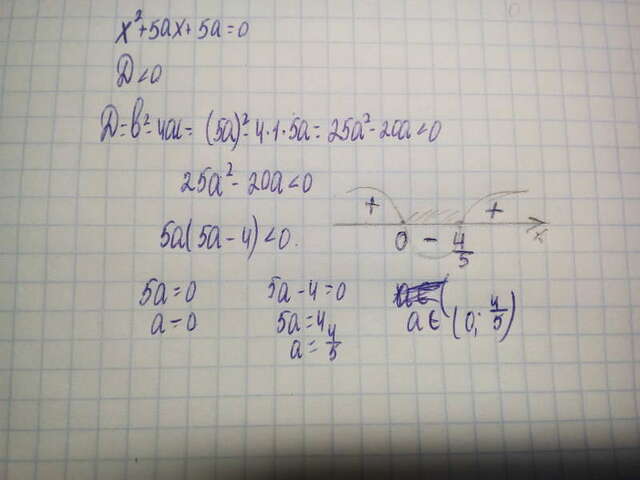 x²+5ax+5a=0
D<0
D=b²-4ac=(5a)²-4·1·5a=25a²-20a<0
25a²-20a<0
5a(5a-4)<0.
+ +
0 - 4/5 x
5a=0 5a-4=0
a=0 5a=4 a∈(0; 4/5)
a=4/5